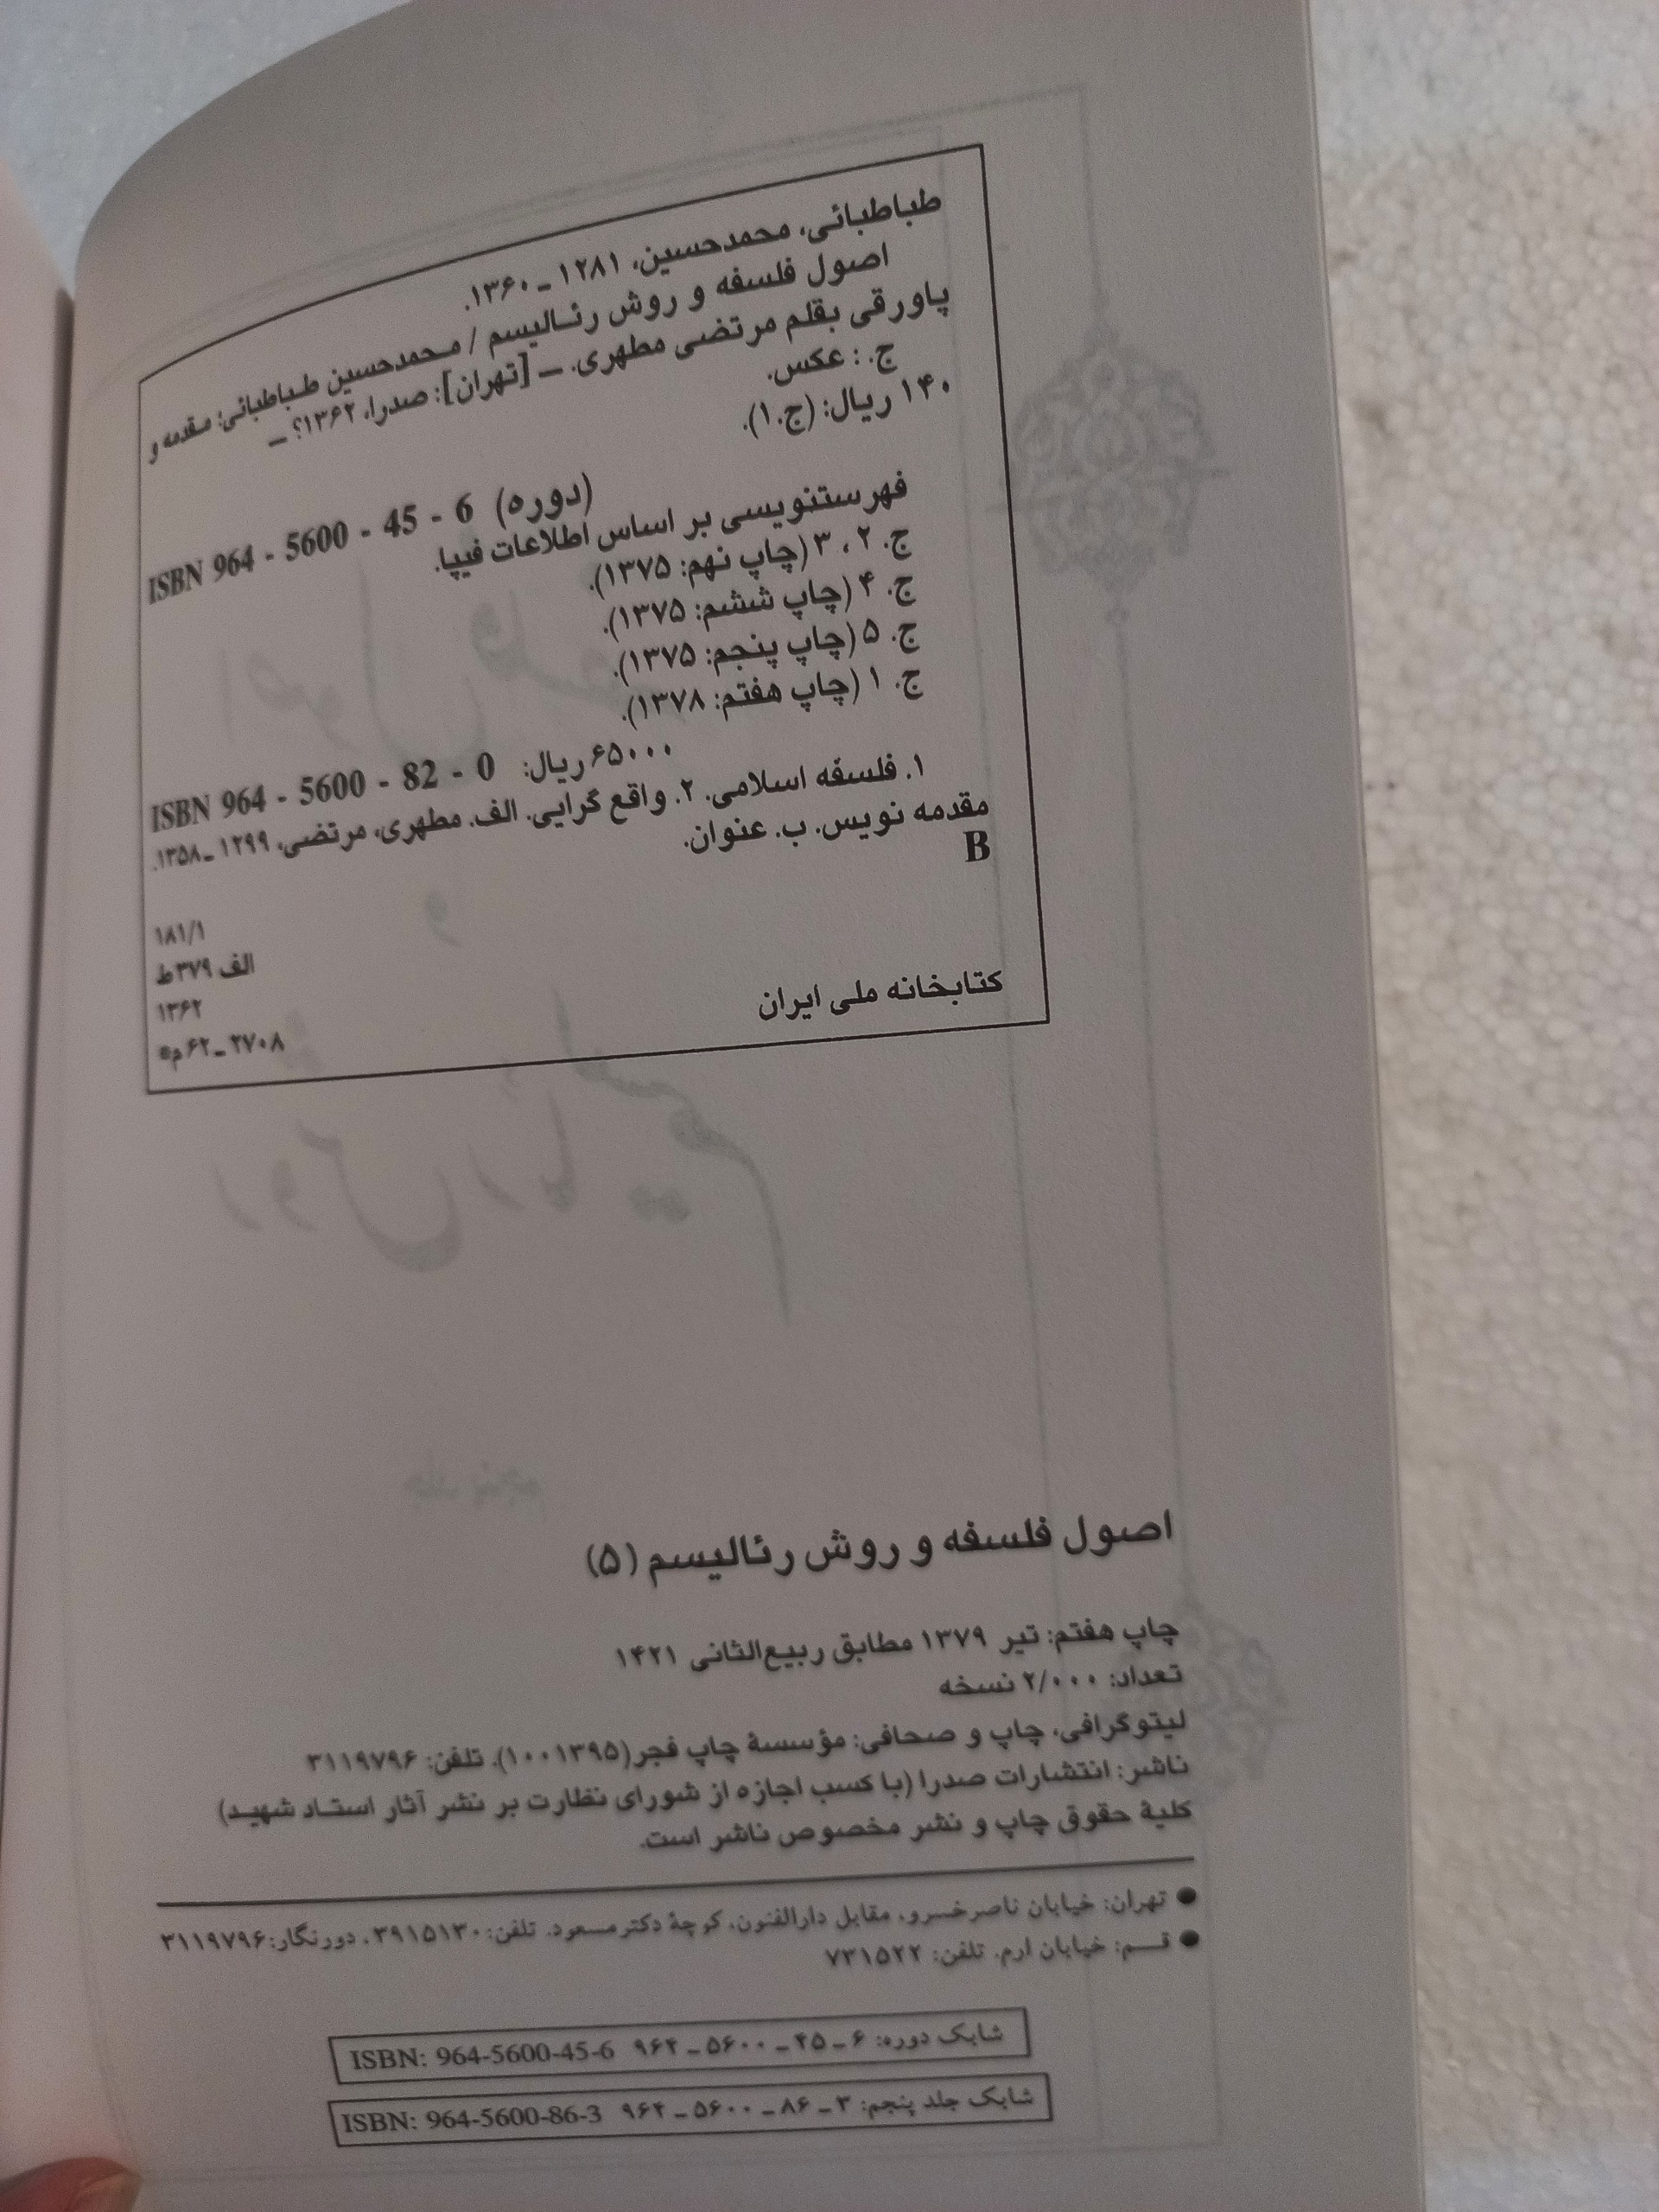 طباطبائی، محمدحسین، ۱۲۸۱ ـ ۱۳۶۰.
اصول فلسفه و روش رئالیسم / محمدحسین طباطبائی؛ مقدمه و
پاورقی بقلم مرتضی مطهری. ـ [تهران]: صدرا، ۱۳۶۲؟ ـ
ج. : عکس.
۱۴۰ ریال: (ج.۱).
ISBN 964 - 5600 - 45 - 6 (دوره)
فهرستنویسی بر اساس اطلاعات فیپا.
ج. ۲ ، ۳ (چاپ نهم: ۱۳۷۵).
ج. ۴ (چاپ ششم: ۱۳۷۵).
ج. ۵ (چاپ پنجم: ۱۳۷۵).
ج. ۱ (چاپ هفتم: ۱۳۷۸).
ISBN 964 - 5600 - 82 - 0 ۶۵۰۰۰ ریال:
۱. فلسفه اسلامی. ۲. واقع گرایی. الف. مطهری، مرتضی، ۱۲۹۹ ـ ۱۳۵۸.
مقدمه نویس. ب. عنوان.
B
۱۸۱/۱
الف ۳۷۹ط
۱۳۶۲
کتابخانه ملی ایران
۲۷۰۸ ـ ۶۲م*
اصول فلسفه و روش رئالیسم (۵)
چاپ هفتم: تیر ۱۳۷۹ مطابق ربیع‌الثانی ۱۴۲۱
تعداد: ۲/۰۰۰ نسخه
لیتوگرافی، چاپ و صحافی: مؤسسهٔ چاپ فجر(۱۰۰۱۳۹۵)، تلفن: ۳۱۱۹۷۹۶
ناشر: انتشارات صدرا (با کسب اجازه از شورای نظارت بر نشر آثار استاد شهید)
کلیهٔ حقوق چاپ و نشر مخصوص ناشر است.
● تهران: خیابان ناصرخسرو، مقابل دارالفنون، کوچهٔ دکتر مسعود. تلفن: ۳۹۱۵۱۳۰، دورنگار: ۳۱۱۹۷۹۶
● قـم: خیابان ارم. تلفن: ۷۳۱۵۲۲
شابک دوره: ۶ ـ ۴۵ ـ ۵۶۰۰ ـ ۹۶۴ ISBN: 964-5600-45-6
شابک جلد پنجم: ۳ ـ ۸۶ ـ ۵۶۰۰ ـ ۹۶۴ ISBN: 964-5600-86-3